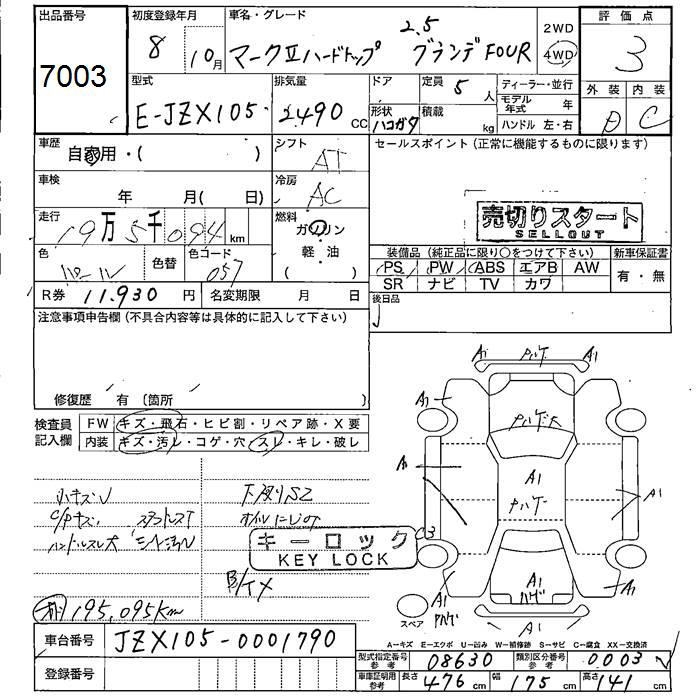 出品番号
7003
初度登録年月
8 10月
車名・グレード
2.5
マークⅡハードトップ グランデFOUR
2WD
4WD
評価点
3
外装 内装
D C
型式
E-JZX105
排気量
2490 cc
ドア
形状 ハコガタ
定員 5人
積載 kg
ディーラー・並行
モデル年式 年
ハンドル 左・右
車歴
自家用・( )
シフト
AT
セールスポイント(正常に機能するものに限ります)
売切りスタート
SELLOUT
車検
年 月( 日)
冷房
AC
走行
19万5千094 km
燃料
ガソリン
軽・油
( )
色
パール
色替
色コード
057
装備品(純正品に限り○をつけて下さい)
PS PW ABS エアB AW
SR ナビ TV カワ
新車保証書
有・無
R券 11,930 円
名変期限 月 日
後日品
注意事項申告欄(不具合内容等は具体的に記入して下さい)
修復歴 有(箇所 )
検査員記入欄
FW キズ・飛石・ヒビ割・リペア跡・X要
内装 キズ・汚レ・コゲ・穴・スレ・キレ・破レ
小キズU
C/Pキズ
ハンドルスレ大
下廻りS2
オイルにじみ
キーロック
KEY LOCK
195,095km
車台番号 JZX105-0001790
登録番号
A1 ハゲ A1
A1 A1
A1
ハゲ
A1
C3
A1
A1
ハゲ
A1
ハゲ
A1
A1
スペア
A−キズ E−エクボ U−凹み W−補修跡 S−サビ C−腐食 XX−交換済
型式指定番号 参考 08630
類別区分番号 参考 0003
車庫証明用 参考 長さ 476 cm 幅 175 cm 高さ 141 cm